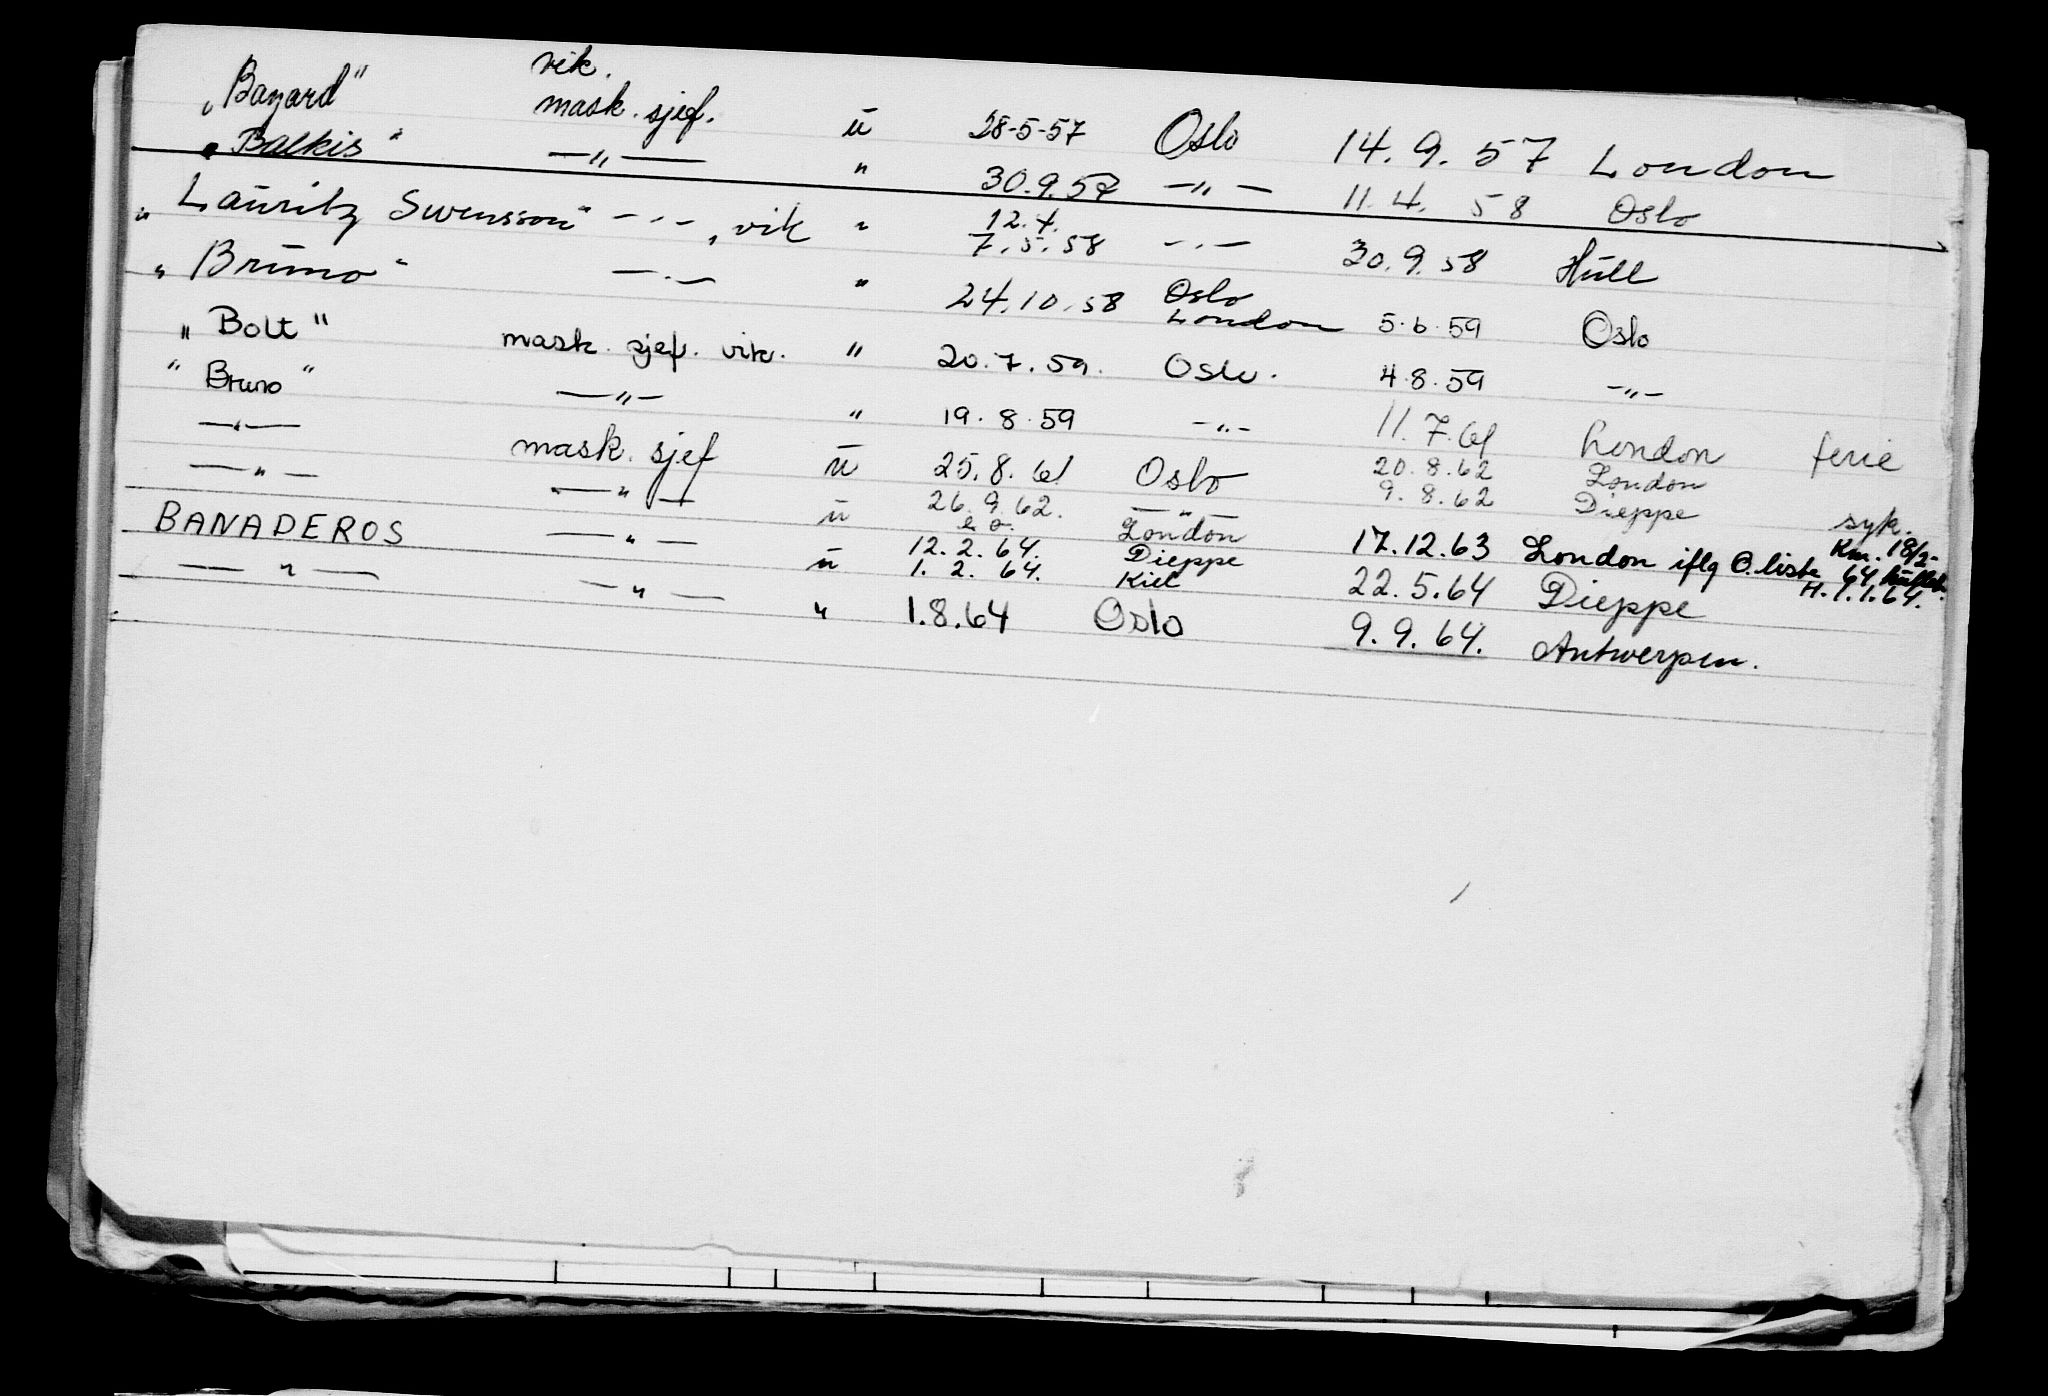 vik.
„Bayard" mask. sjef. u 28-5-57 Oslo 14. 9. 57 London
„Balkis" —"— " 30.9.57 —"— 11. 4. 58 Oslo
„Lauritz Swensson" —"—, vik " 12.4. 7.5.58 —"— 30.9.58 Hull
„Bruno" —"— " 24.10.58 Oslo London 5.6.59 Oslo
„Bolt" mask. sjef. vik. " 20.7.59. Oslo. 4.8.59 —"—
"Bruno" —"— " 19.8.59 —"— 11.7.61 London ferie
—"— mask. sjef u 25.8.61 Oslo 20.8.62 London
9.8.62 Dieppe syk.
—"— —"— u 26.9.62. —"—
e.o. London 17.12.63 London iflg O.liste Km. 18/2-64
H. 1.1.64.
BANADEROS —"— u 12.2.64. Dieppe
1.2.64. Kiel 22.5.64 Dieppe
—"— —"— " 1.8.64 Oslo 9.9.64. Antwerpen.